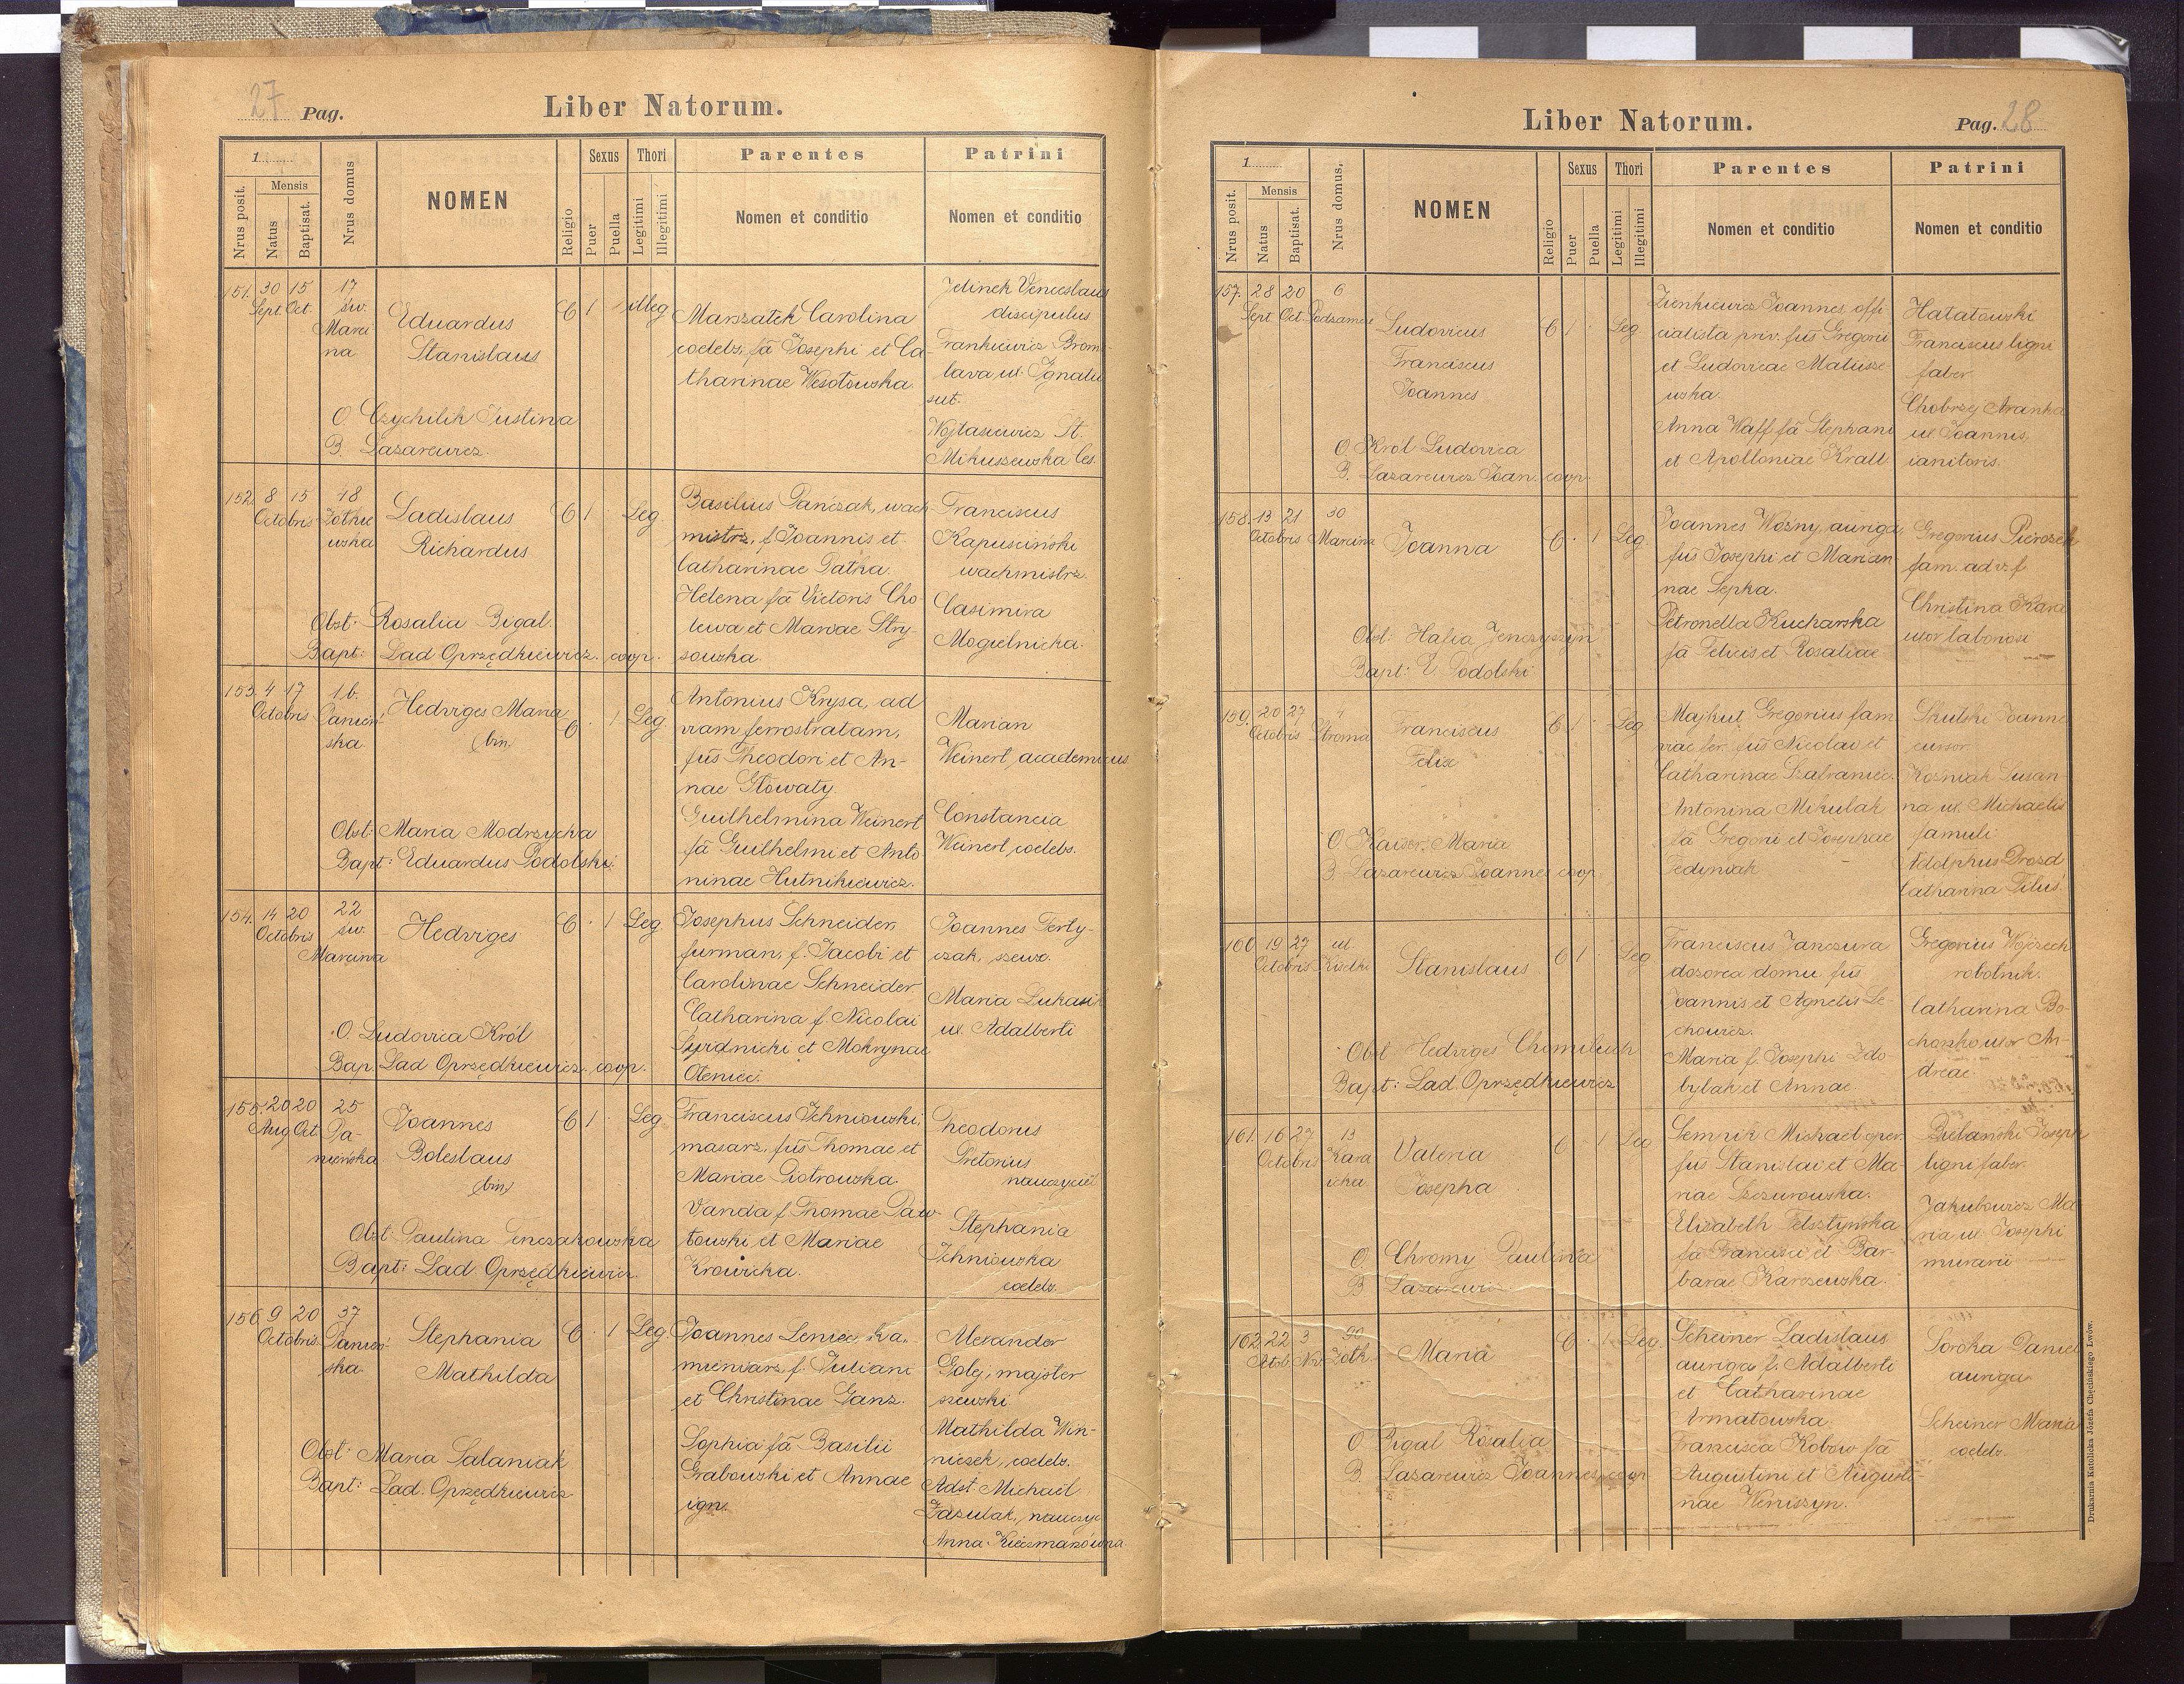 27 Pag.
Liber Natorum.
1
Nrus posit.
Mensis
Natus
Baptisat.
Nrus domus
NOMEN
Religio
Sexus
Puer
Puella
Thori
Legitimi
Illegitimi
Parentes
Nomen et conditio
Patrini
Nomen et conditio
151. 30 15 17
Sept. Oct. św.
Marci
na
Eduardus
Stanislaus
C 1 illeg
O. Czychilik Justina
B. Lazarewicz.
Marszałek Carolina
coelebs, fa Josephi et Ca-
tharinae Wesołowska.
Jelinek Venceslaus
discipulus
Frankiewicz Broni-
lava ux. Ignatii
sut.
Wojtasiewicz St.
Mikuszewska Ces.
152. 8 15 48
Octobris Żółkie
wska
Ladislaus
Richardus
C 1 Leg.
Obst: Rosalia Bigal.
Bapt: Lad Oprzędkiewicz. coop.
Basilius Pańczak, wach
mistrz, f. Joannis et
Catharinae Patka.
Helena fa Victoris Cho-
lewa et Mariae Stry-
sowska.
Franciscus
Kapuscinski
wachmistrz.
Casimira
Mogielnicka.
153. 4 17 1b.
Octobris Panień
ska
Hedviges Maria
(bin)
C 1 Leg.
Obst: Maria Modrzycka
Bapt: Eduardus Podolski.
Antonius Krysa, ad
viam ferrostratam,
fus Theodori et An-
nae Głowaty.
Guilhelmina Weinert
fa Guilhelmi et Anto-
ninae Hutnikiewicz.
Marian
Weinert academicus
Constancia
Weinert, coelebs.
154. 14 20 22
Octobris św.
Marcina
Hedviges
C 1 Leg
O. Ludovica Król
Bap. Lad Oprzędkiewicz. coop.
Josephus Schneider,
furman, f. Jacobi et
Carolinae Schneider.
Catharina f. Nicolai
Svidnicki et Mokrynae
Oleniec.
Joannes Ferly-
czak, szewc.
Maria Lukasik
ux. Adalberti
155. 20 20 25
Aug Oct Pa-
nieńska
Joannes
Boleslaus
(bin)
C 1 Leg
Obst: Paulina Tenczakowska
Bapt: Lad. Oprzędkiewicz.
Franciscus Ichniowski,
masarz, fus Thomae et
Mariae Piotrowska.
Vanda f Thomae Paw-
łowski et Mariae
Krowicka.
Theodorus
Pretorius
nauczyciel
Stephania
Ichniowska
coelebs.
156. 9 20 37
Octobris Panień
ska.
Stephania
Mathilda
C 1 Leg.
Obst: Maria Salaniak
Bapt: Lad. Oprzędkiewicz
Joannes Leniec, ka-
mieniarz, f. Juliani
et Christinae Ganz.
Sophia fa Basilii
Grabowski et Annae
ign.
Alexander
Golej, majster
szewski
Mathilda Win-
niczek, coelebs.
Adst. Michaël
Zazulak, nauczyc
Anna Kiezmanówna
Liber Natorum.
Pag. 28
1
Nrus posit.
Mensis
Natus
Baptisat.
Nrus domus.
NOMEN
Religio
Sexus
Puer
Puella
Thori
Legitimi
Illegitimi
Parentes
Nomen et conditio
Patrini
Nomen et conditio
157. 28 20 6
Sept Oct. Podzamcze
Ludovicus
Franciscus
Joannes
C 1 Leg
O. Król Ludovica
B. Lazarewicz Joan. coop.
Zienkiewicz Joannes, offi
cialista priv. fus Gregorii
et Ludovicae Matusze-
wska.
Anna Waff fa Stephani
et Apolloniae Krall
Hałatowski
Franciscus ligni
faber
Chobrzej Aranka
ux. Joannis,
ianitoris.
158. 13 21 30
Octobris Marcina
Joanna
C. 1 Leg.
Obst: Halia Jenczyszyn
Bapt: E Podolski
Joannes Wozny, auriga,
fus Josephi et Marian
nae Sepka.
Petronella Kucharska
fa Felicis et Rosaliae
Gregorius Pierozek
fam. ad v. f.
Christina Kara
uxor laboriosi
159. 20 27 4
Octobris Stroma
Franciscus
Felix
C 1 Leg
O Kaiser Maria
B. Lazarewicz Joannes coop.
Majkut Gregorius fam
viae fer. fus Nicolai et
Catharinae Szafraniec.
Antonina Mikulak
fa Gregorii et Josephae
Fedyniak
Skulski Joanne
cursor.
Kozniak Susan-
na ux. Michaelis
famuli
Adolphus Drozd
Catharina Filus
160. 19 27 ul.
Octobris Kisielki
Stanislaus
C 1 Leg
Obst. Hedviges Chomiluch
Bapt: Lad. Oprzędkiewicz
Franciscus Janczura
dozorca domu, fus
Joannis et Agnetis Le-
chowicz.
Maria f. Josephi Zdo-
bylak et Annae
Gregorius Wojciech
robotnik.
Catharina Bo-
chonko uxor An-
dreae
161. 16 27 13
Octobris Kara
icka
Valeria
Josepha
C 1 Leg
O. Chromy Paulina
B Lazarewicz
Sempik Michaël oper.
fus Stanislai et Ma-
riae Szczurowska.
Elisabeth Felsztyńska
fa Francisci et Bar-
barae Karczewska.
Bielański Joseph
ligni faber.
Jakubowicz Ma-
ria ux. Josephi
murarii
162. 22 3 90
Octob Nov Żółk.
Maria
C. 1 Leg.
O Bigal Rosalia
B. Lazarewicz Joannes, coop.
Scheiner Ladislaus
auriga f. Adalberti
et Catharinae
Armatowska.
Francisca Kobow fa
Augustini et Augusti-
nae Weniszyn.
Soroka Daniel
auriga
Scheiner Maria
coelebs.
Drukarnia Katolicka Józefa Chęcińskiego Lwów.